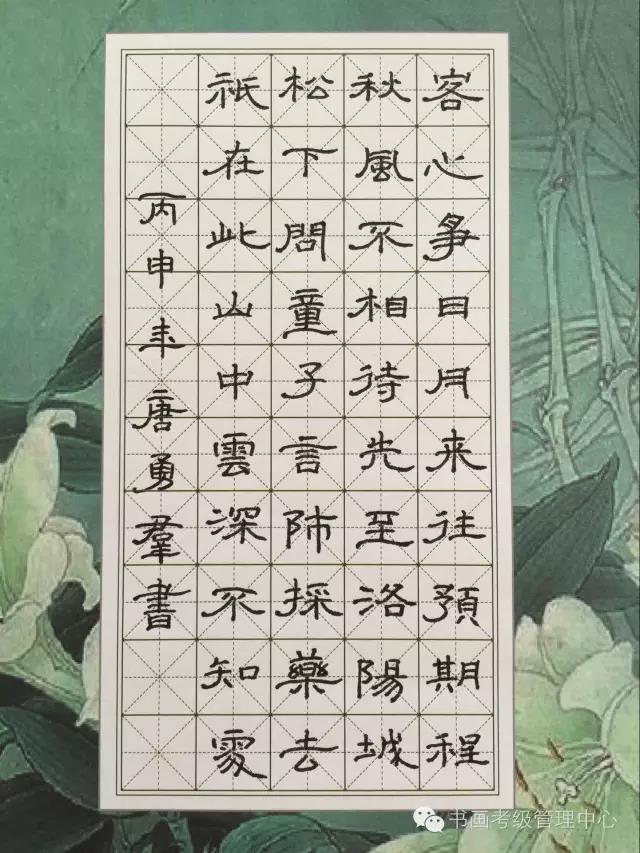 客心爭日月来往預期程
秋風不相待先至洛陽城
松下問童子言師採藥去
祇在此山中雲深不知處
丙申年唐勇羣書
书画考级管理中心